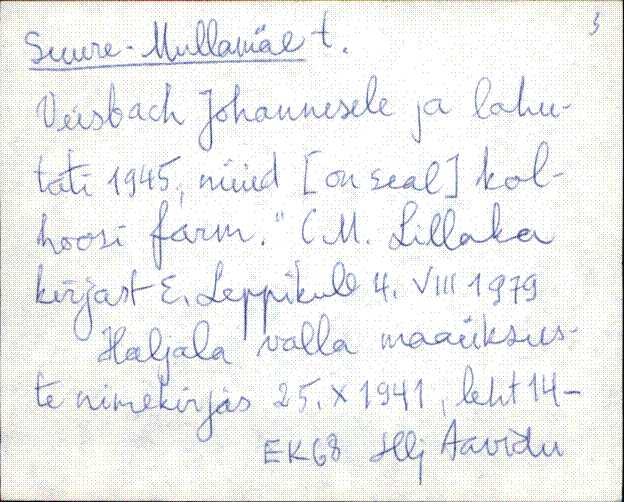 3
Suure-Mullamäe t.
Veisbach Johannesele ja lahu-
tati 1945, nüüd [on seal] kol-
hoosi farm." (M. Lillaka
kirjast E. Leppikule 4. VIII 1979
Haljala valla maaüksus-
te nimekirjas 25. X 1941, leht 14-
EK68 Hlj Aaviku